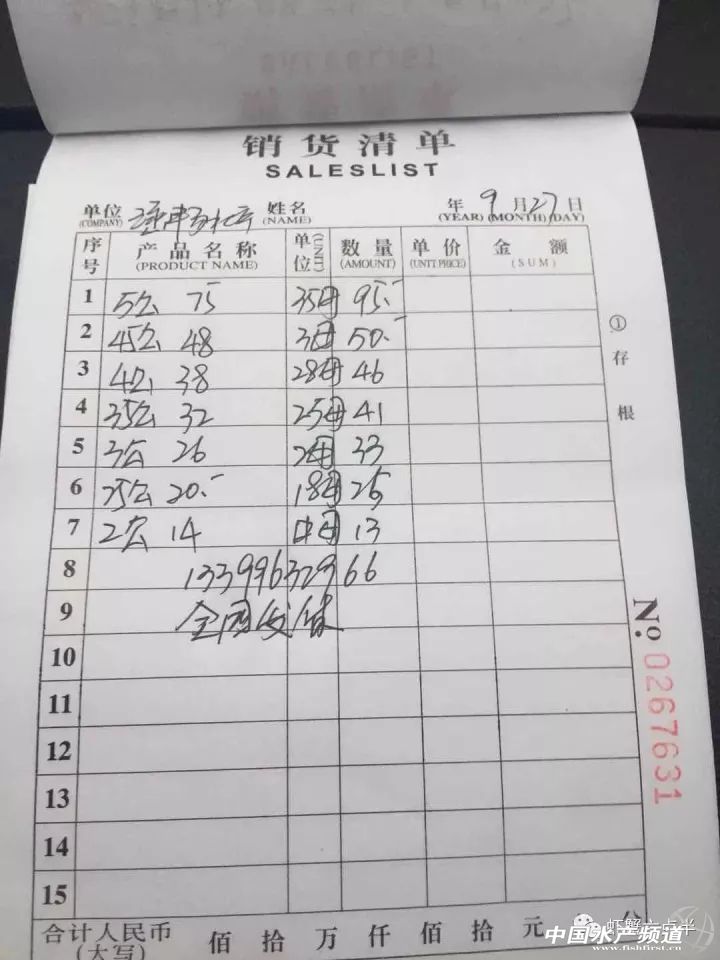 销货清单
SALESLIST
单位 姓名 年 9 月 27 日
(COMPANY) (NAME) (YEAR) (MONTH) (DAY)
序号 产品名称 单位 数量 单价 金额
(PRODUCT NAME) (UNIT) (AMOUNT) (UNTT PRICE) (SUM)
1 5公 75 35母 95.-
2 45公 48 3母 50.-
3 4公 38 28母 46
4 35公 32 25母 41
5 3公 26 2母 33
6 25公 20.- 18母 25
7 2公 14 中母 13
8 13399632966
9 全国发货
10
11
12
13
14
15
合计人民币 佰 拾 万 仟 佰 拾 元 分
(大写)
①存根
No. 0267631
虾蟹六点半
中国水产频道
www.fishfirst.cn